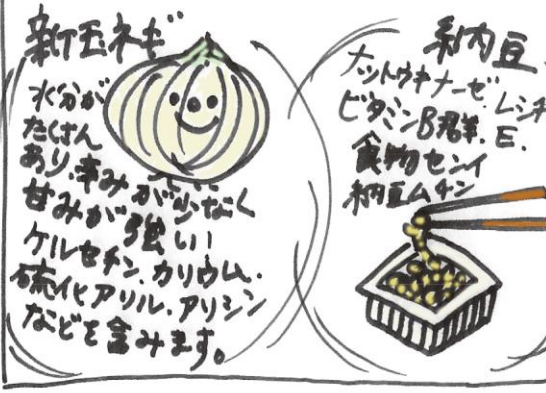 新玉ネギ
水分が
たくさん
あり、辛みが少なく
甘みが強い
ケルセチン、カリウム、
硫化アリル、アリシン
などを含みます。
納豆
ナットウキナーゼ、レシチ
ビタミンB群、E、
食物センイ
納豆ムチン